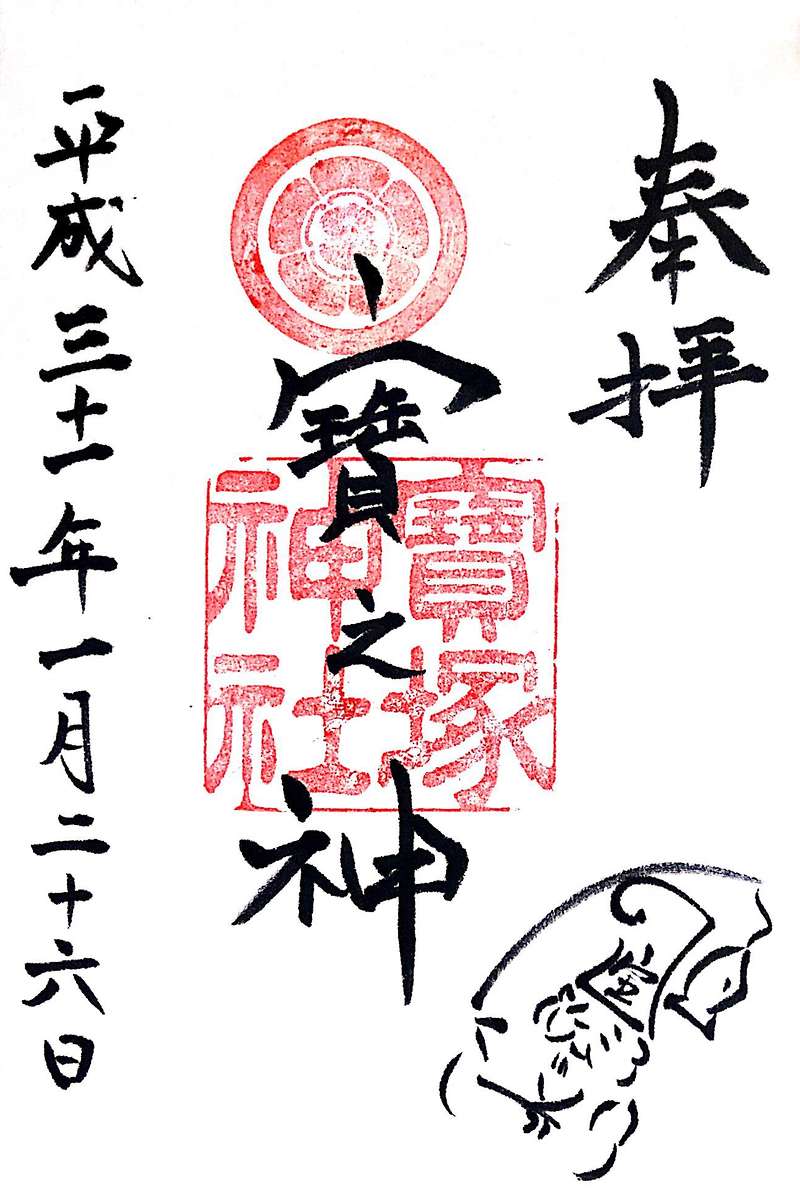 奉拝
寶之神
寶塚
神社
平成三十一年一月二十六日